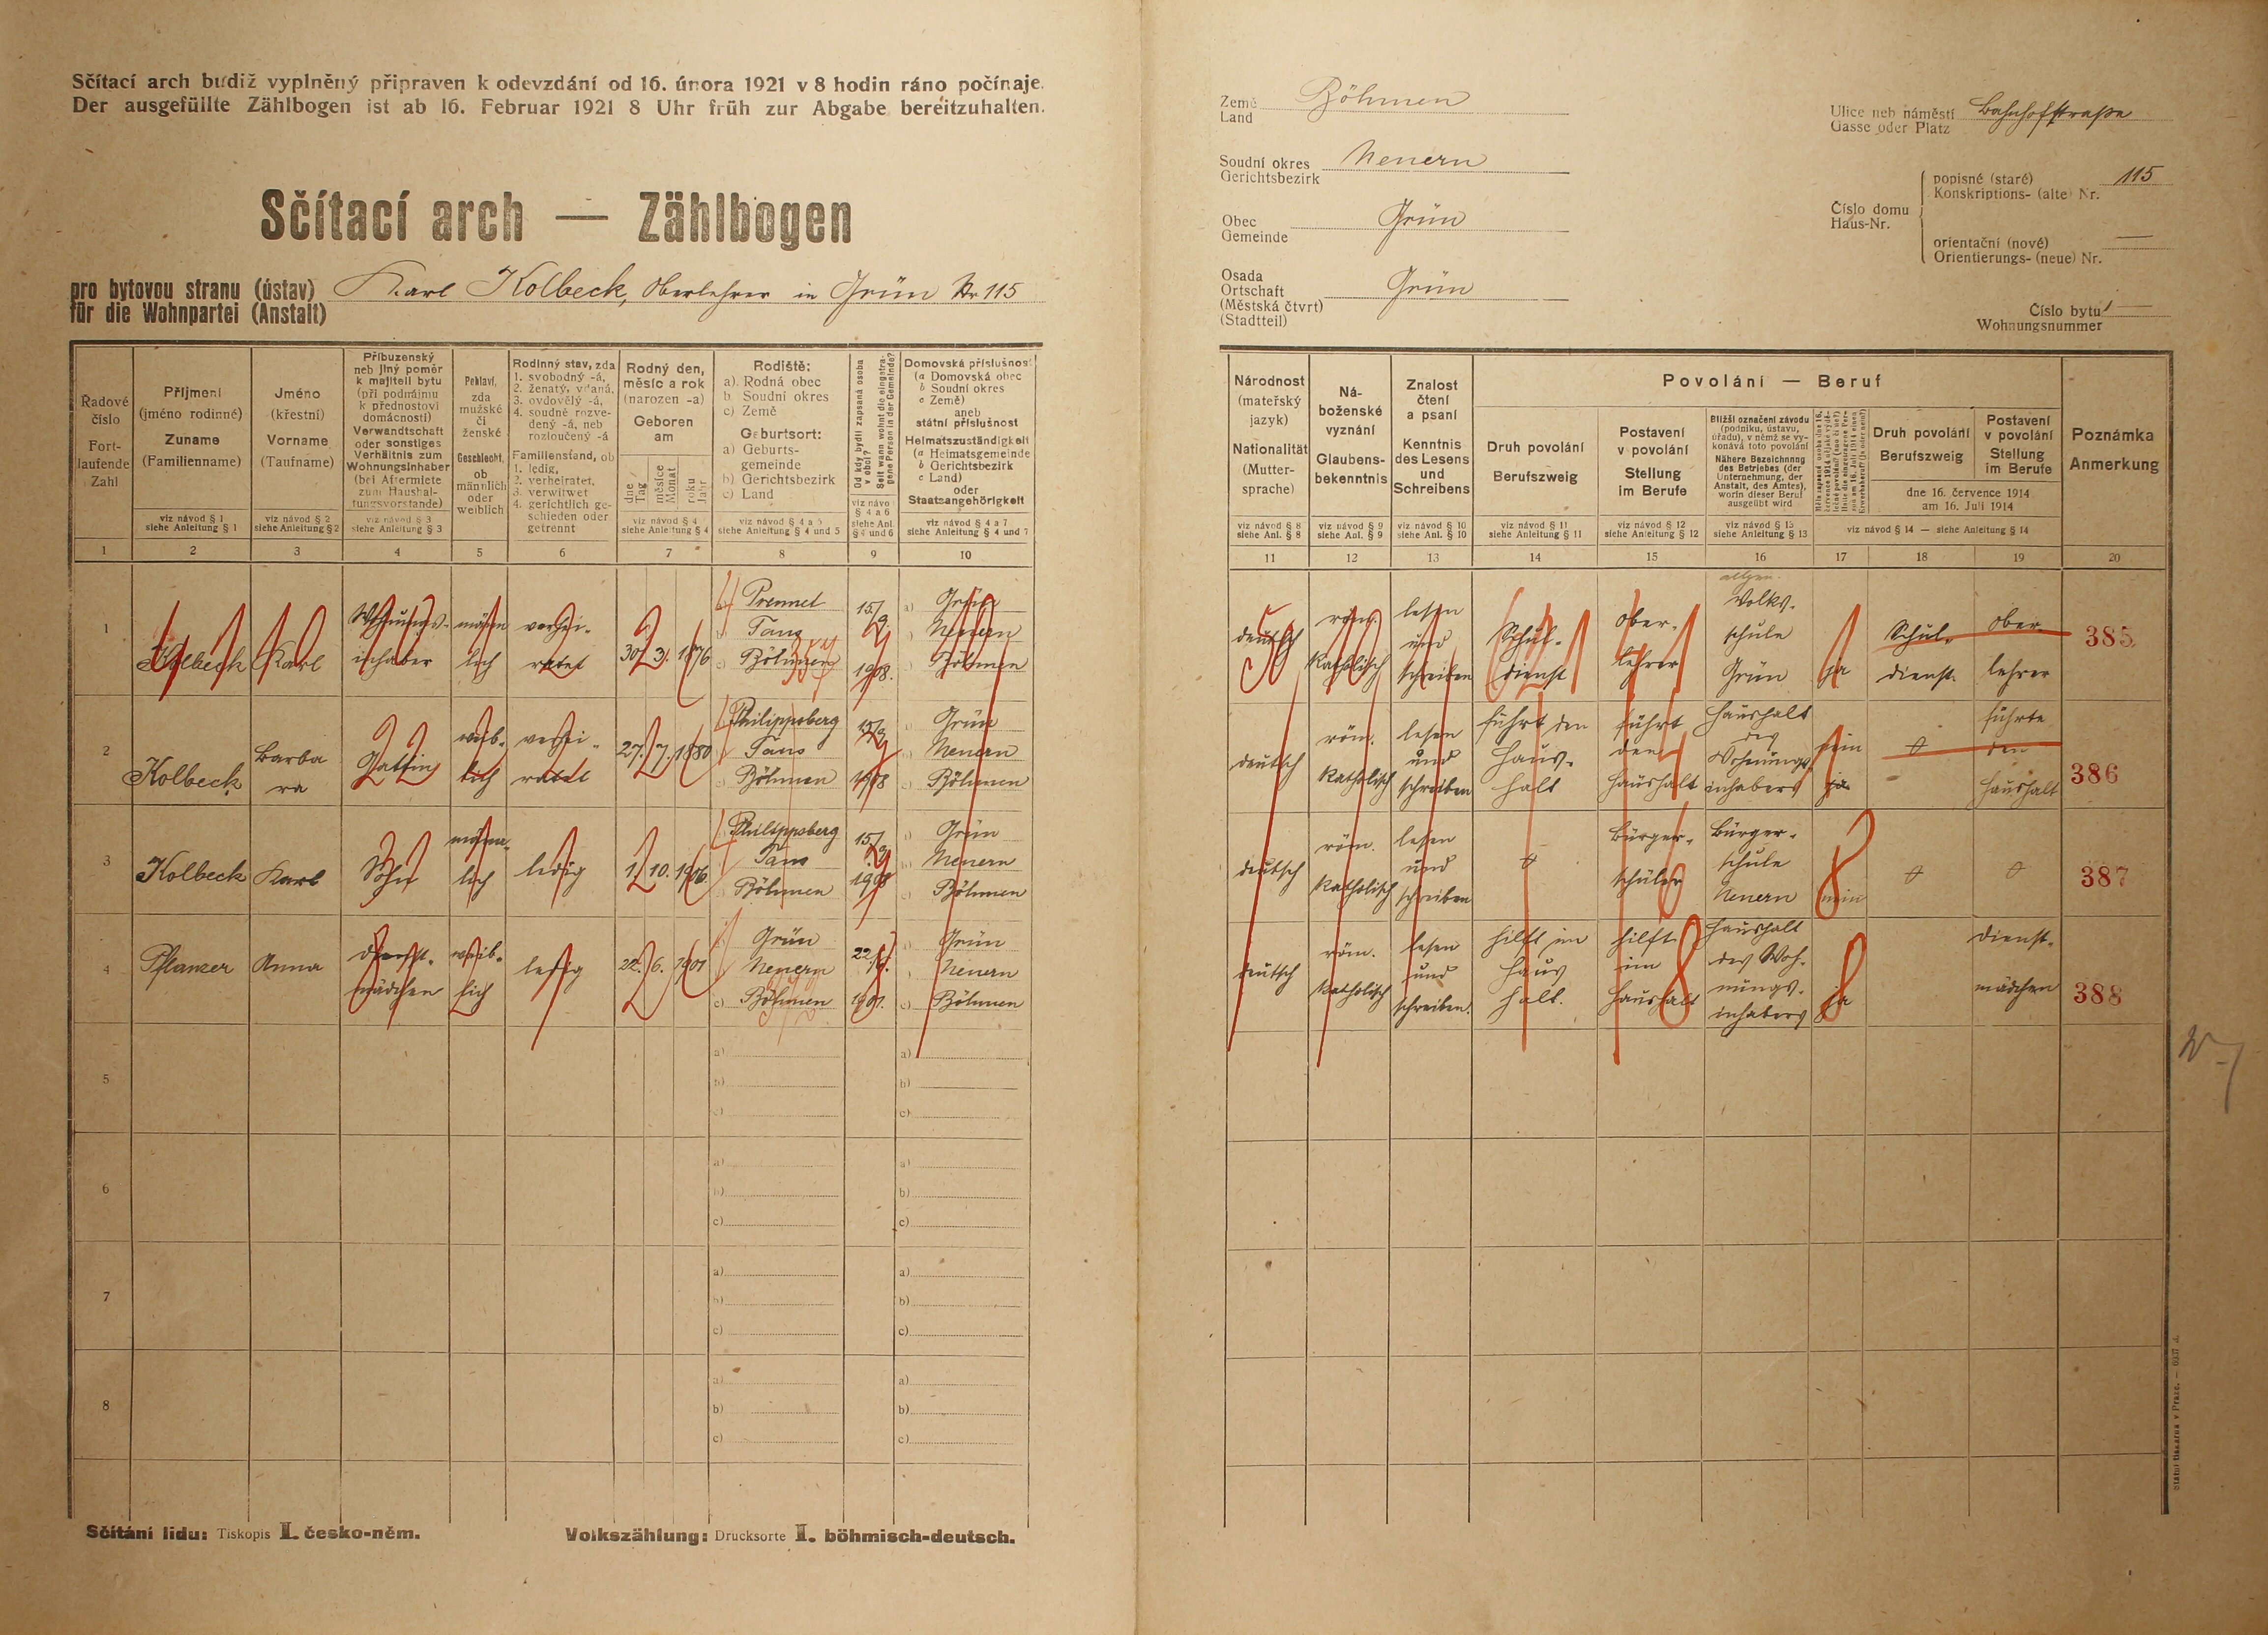 Sčítací arch budiž vyplněný připraven k odevzdání od 16. února 1921 v 8 hodin ráno počínaje.
Der ausgefüllte Zählbogen ist ab 16. Februar 1921 8 Uhr früh zur Abgabe bereitzuhalten.
Sčítací arch — Zählbogen
pro bytovou stranu (ústav)
für die Wohnpartei (Anstalt)
Karl Kolbeck, Oberlehrer in Grün Nr 115
Řadové číslo
Fortlaufende Zahl
1
Příjmení
(jméno rodinné)
Zuname
(Familienname)
viz návod § 1
siehe Anleitung § 1
2
Jméno
(křestní)
Vorname
(Taufname)
viz návod § 2
siehe Anleitung § 2
3
Příbuzenský
neb jiný poměr
k majiteli bytu
(při podnájmu
k přednostovi
domácnosti)
Verwandtschaft
oder sonstiges
Verhältnis zum
Wohnungsinhaber
(bei Aftermiete
zum Haushal-
tungsvorstande)
viz návod § 3
siehe Anleitung § 3
4
Pohlaví,
zda
mužské
či
ženské
Geschlecht,
ob
männlich
oder
weiblich
5
Rodinný stav, zda
1. svobodný -á,
2. ženatý, vdaná,
3. ovdovělý -á,
4. soudně rozve-
dený -á, neb
rozloučený -á
Familienstand, ob
1. ledig,
2. verheiratet,
3. verwitwet
4. gerichtlich ge-
schieden oder
getrennt
6
Rodný den,
měsíc a rok
(narozen -a)
Geboren
am
dne
Tag
měsíce
Monat
roku
Jahr
viz návod § 4
siehe Anleitung § 4
7
Rodiště:
a) Rodná obec
b) Soudní okres
c) Země
Geburtsort:
a) Geburts-
gemeinde
b) Gerichtsbezirk
c) Land
viz návod § 4 a 5
siehe Anleitung § 4 und 5
8
Od kdy bydlí zapsaná osoba
v obci?
Seit wann wohnt die eingetra-
gene Person in der Gemeinde?
viz návod
§ 4 a 6
siehe Anl.
§ 4 und 6
9
Domovská příslušnost
(a Domovská obec
b Soudní okres
c Země)
aneb
státní příslušnost
Heimatszuständigkeit
(a Heimatsgemeinde
b Gerichtsbezirk
c Land)
oder
Staatsangehörigkeit
viz návod § 4 a 7
siehe Anleitung § 4 und 7
10
1 Kolbeck Karl Wohnungs-inhaber männlich verhei-ratet 30. 3. 1876
Prennet
Taus
Böhmen
15./9. 1908.
a) Grün
Neuern
Böhmen
2 Kolbeck Barbara Gattin weib-lich verhei-ratet 27. 7. 1880
Philippsberg
Taus
Böhmen
15/9 1908
Grün
Neuern
Böhmen
3 Kolbeck Karl Sohn männ-lich ledig 1. 10. 1906
Philippsberg
Taus
Böhmen
15./9 1908
Grün
Neuern
Böhmen
4 Pflanzer Anna Dienst-mädchen weib-lich ledig 22. 6. 1901
Grün
Neuern
c) Böhmen
22./6. 1901.
Grün
Neuern
c) Böhmen
5
a) a)
b) b)
c) c)
6
a) a)
b) b)
c) c)
7
a) a)
b) b)
c) c)
8
a) a)
b) b)
c) c)
Sčítání lidu: Tiskopis I. česko-něm.
Volkszählung: Drucksorte I. böhmisch-deutsch.
Země
Land
Böhmen
Soudní okres
Gerichtsbezirk
Neuern
Obec
Gemeinde
Grün
Osada
Ortschaft
(Městská čtvrt)
(Stadtteil)
Grün
Ulice neb náměstí
Gasse oder Platz
Bahnhofstraße
Číslo domu
Haus-Nr.
popisné (staré)
Konskriptions- (alte) Nr.
115
orientační (nové)
Orientierungs- (neue) Nr.
—
Číslo bytu
Wohnungsnummer
Národnost
(mateřský
jazyk)
Nationalität
(Mutter-
sprache)
viz návod § 8
siehe Anl. § 8
11
Ná-
boženské
vyznání
Glaubens-
bekenntnis
viz návod § 9
siehe Anl. § 9
12
Znalost
čtení
a psaní
Kenntnis
des Lesens
und
Schreibens
viz návod § 10
siehe Anl. § 10
13
Povolání — Beruf
Druh povolání
Berufszweig
viz návod § 11
siehe Anleitung § 11
14
Postavení
v povolání
Stellung
im Berufe
viz návod § 12
siehe Anleitung § 12
15
Bližší označení závodu
(podniku, ústavu,
úřadu), v němž se vy-
konává toto povolání
Nähere Bezeichnung
des Betriebes (der
Unternehmung, der
Anstalt, des Amtes),
worin dieser Beruf
ausgeübt wird
viz návod § 13
siehe Anleitung § 13
16
17
Druh povolání
Berufszweig
Postavení
v povolání
Stellung
im Berufe
dne 16. července 1914
am 16. Juli 1914
viz návod § 14 — siehe Anleitung § 14
18
19
Poznámka
Anmerkung
20
deutsch
röm. katholisch
lesen und schreiben
Schul-dienst
Ober-lehrer
allgem. Volks-schule Grün
ja
Schul-dienst
Ober-lehrer
385
deutsch
röm. katholisch
lesen und schreiben
führt den Haus-halt
führt den Haushalt
Haushalt des Wohnungs-inhabers
nein
ja
führte den Haushalt
386
deutsch
röm. katholisch
lesen und schreiben
Bürger-schüler
Bürger-schule Neuern
nein
387
deutsch
röm. katholisch
lesen und schreiben.
hilft im Haus halt.
hilft im Haushalt
Haushalt des Woh-nungs-inhabers
ja
Dienst-mädchen
388